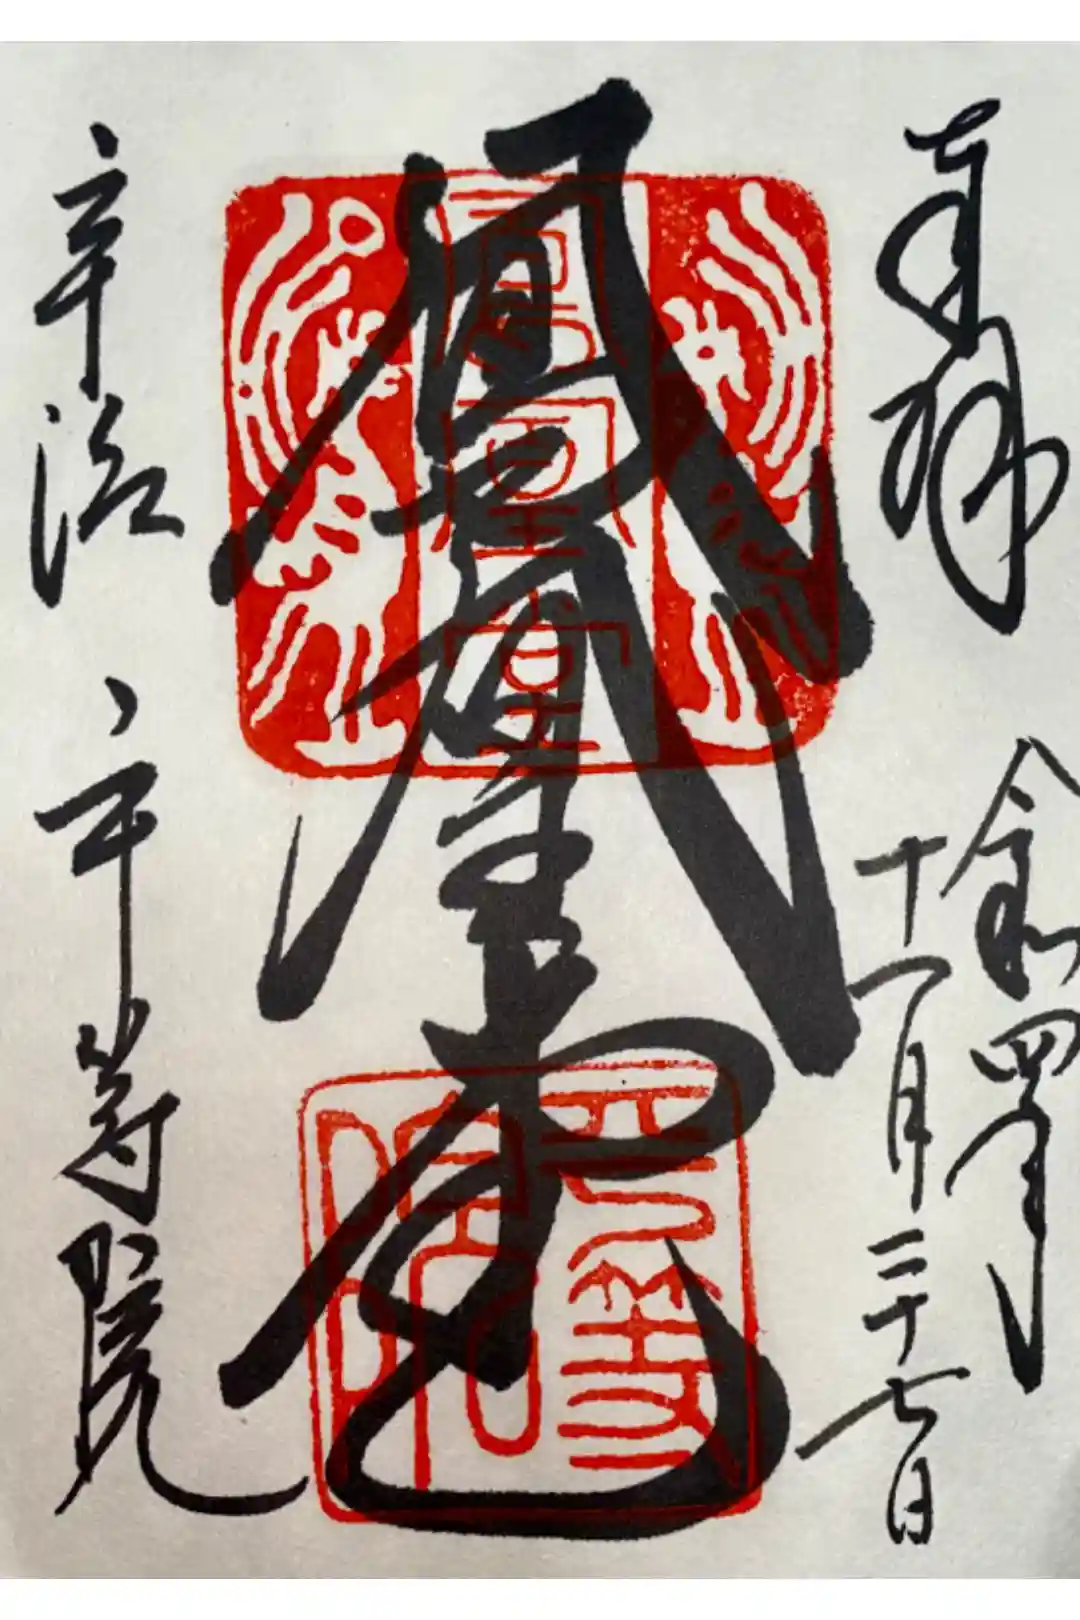 奉拝
令和四年
十一月二十七日
鳳凰堂
鳳凰堂
平等院
宇治 平等院